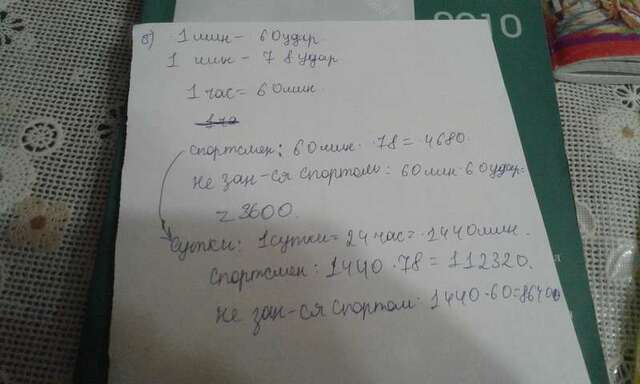 2010
б) 1 мин - 60 удар.
1 мин - 78 удар.
1 час = 60 мин.
1 ча
спортсмен: 60 мин · 78 = 4680.
не зан-ся спортом: 60 мин · 60 удар.
= 3600.
Сутки: 1 сутки = 24 час = 1440 мин.
Спортсмен: 1440 · 78 = 112320.
не зан-ся спортом: 1440 · 60 = 86400